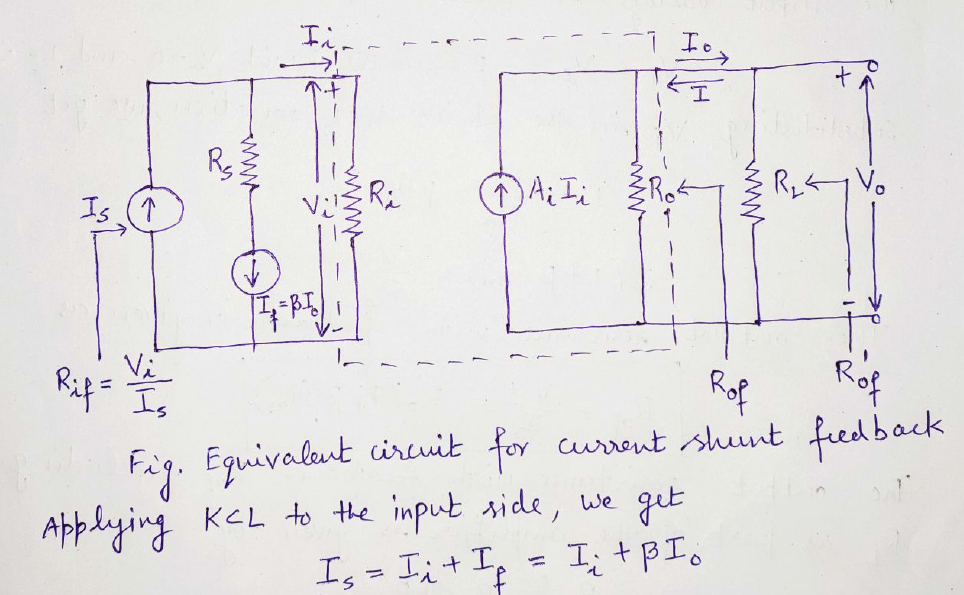 I_i
I_o
+
I
+
R_s
V_i
R_i
A_i I_i
R_o
R_L
V_o
I_s
I_f = βI_o
-
-
R_if = V_i / I_s
R_of
R'_of
Fig. Equivalent circuit for current shunt feedback
Applying KCL to the input side, we get
I_s = I_i + I_f = I_i + βI_o